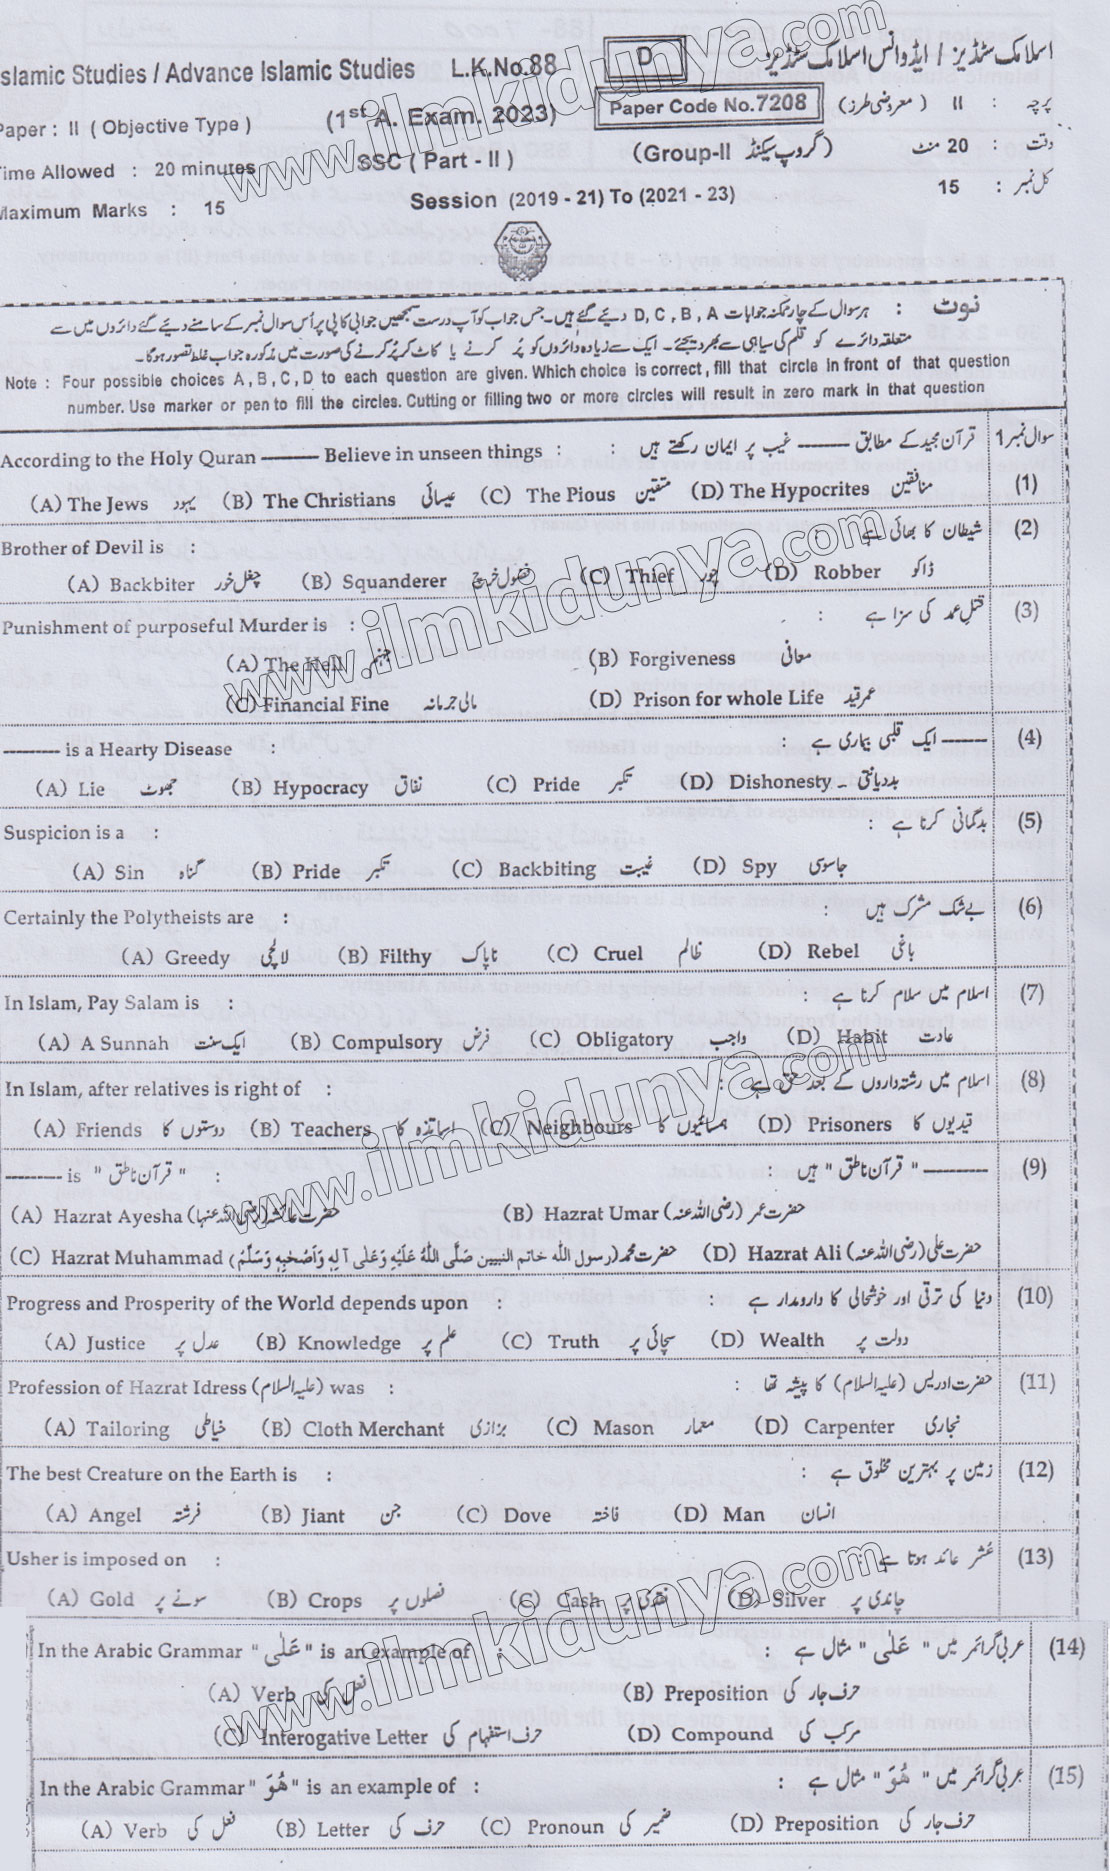 Islamic Studies / Advance Islamic Studies L.K.No.88 D اسلامک سٹڈیز / ایڈوانس اسلامک سٹڈیز
Paper : II ( Objective Type ) (1st A. Exam. 2023) Paper Code No.7208 پرچہ : II ( معروضی طرز )
Time Allowed : 20 minutes SSC ( Part - II ) (Group-II گروپ سیکنڈ) وقت : 20 منٹ
Maximum Marks : 15 Session (2019 - 21) To (2021 - 23) کل نمبر : 15
نوٹ : ہر سوال کے چار ممکنہ جوابات D, C, B, A دیئے گئے ہیں۔ جس جواب کو آپ درست سمجھیں جوابی کاپی پر اُس سوال نمبر کے سامنے دیئے گئے دائروں میں سے
متعلقہ دائرے کو قلم کی سیاہی سے بھر دیجئے۔ ایک سے زیادہ دائروں کو پُر کرنے یا کاٹ کر پُر کرنے کی صورت میں مذکورہ جواب غلط تصور ہوگا۔
Note : Four possible choices A , B , C , D to each question are given. Which choice is correct, fill that circle in front of that question
number. Use marker or pen to fill the circles. Cutting or filling two or more circles will result in zero mark in that question
سوال نمبر 1 قرآن مجید کے مطابق ------- غیب پر ایمان رکھتے ہیں :
According to the Holy Quran ------- Believe in unseen things : (1)
(A) The Jews یہود (B) The Christians عیسائی (C) The Pious متقین (D) The Hypocrites منافقین
Brother of Devil is : شیطان کا بھائی ہے : (2)
(A) Backbiter چغل خور (B) Squanderer فضول خرچ (C) Thief چور (D) Robber ڈاکو
Punishment of purposeful Murder is : قتلِ عمد کی سزا ہے : (3)
(A) The Hell جہنم (B) Forgiveness معافی
(C) Financial Fine مالی جرمانہ (D) Prison for whole Life عمر قید
-------- is a Hearty Disease : ------- ایک قلبی بیماری ہے : (4)
(A) Lie جھوٹ (B) Hypocracy نفاق (C) Pride تکبر (D) Dishonesty بددیانتی
Suspicion is a : بدگمانی کرنا ہے : (5)
(A) Sin گناہ (B) Pride تکبر (C) Backbiting غیبت (D) Spy جاسوسی
Certainly the Polytheists are : بے شک مشرک ہیں : (6)
(A) Greedy لالچی (B) Filthy ناپاک (C) Cruel ظالم (D) Rebel باغی
In Islam, Pay Salam is : اسلام میں سلام کرنا ہے : (7)
(A) A Sunnah ایک سنت (B) Compulsory فرض (C) Obligatory واجب (D) Habit عادت
In Islam, after relatives is right of : اسلام میں رشتہ داروں کے بعد حق ہے : (8)
(A) Friends دوستوں کا (B) Teachers اساتذہ کا (C) Neighbours ہمسائیوں کا (D) Prisoners قیدیوں کا
--------- is " قرآن ناطق " : --------- " قرآن ناطق " ہیں : (9)
(A) Hazrat Ayesha (رضی اللہ عنہا) حضرت عائشہ (B) Hazrat Umar (رضی اللہ عنہ) حضرت عمر
(C) Hazrat Muhammad (رسول اللہ خاتم النبیین صَلَّی اللہُ عَلَیْہِ وَعَلٰی آلِہٖ وَاَصْحٰبِہٖ وَسَلَّمَ) حضرت محمد (D) Hazrat Ali (رضی اللہ عنہ) حضرت علی
Progress and Prosperity of the World depends upon : دنیا کی ترقی اور خوشحالی کا دارومدار ہے : (10)
(A) Justice عدل پر (B) Knowledge علم پر (C) Truth سچائی پر (D) Wealth دولت پر
Profession of Hazrat Idress (علیہ السلام) was : حضرت ادریس (علیہ السلام) کا پیشہ تھا : (11)
(A) Tailoring خیاطی (B) Cloth Merchant بزازی (C) Mason معمار (D) Carpenter نجاری
The best Creature on the Earth is : زمین پر بہترین مخلوق ہے : (12)
(A) Angel فرشتہ (B) Jiant جن (C) Dove فاختہ (D) Man انسان
Usher is imposed on : عُشر عائد ہوتا ہے : (13)
(A) Gold سونے پر (B) Crops فصلوں پر (C) Cash نقدی پر (D) Silver چاندی پر
In the Arabic Grammar " عَلٰی " is an example of : عربی گرائمر میں " عَلٰی " مثال ہے : (14)
(A) Verb فعل کی (B) Preposition حرف جار کی
(C) Interogative Letter حرف استفہام کی (D) Compound مرکب کی
In the Arabic Grammar " هُوَ " is an example of : عربی گرائمر میں " هُوَ " مثال ہے : (15)
(A) Verb فعل کی (B) Letter حرف کی (C) Pronoun ضمیر کی (D) Preposition حرف جار کی
www.ilmkidunya.com
www.ilmkidunya.com
www.ilmkidunya.com
www.ilmkidunya.com